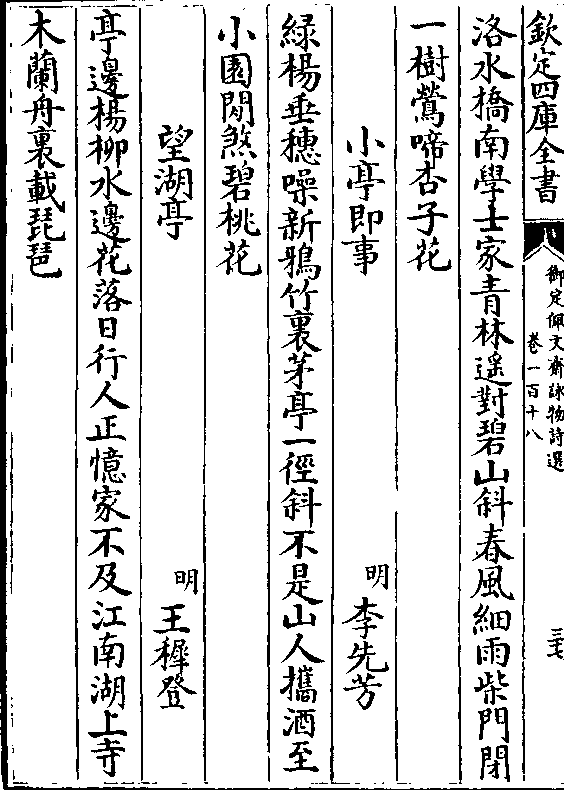 欽定四庫全書
御定佩文齋詠物詩選
卷一百十八
三七
洛水橋南學士家青林遥對碧山斜春風細雨柴門閉
一樹鶯啼杏子花
小亭即事
明
李先芳
緑楊垂穗噪新鴉竹裏茅亭一徑斜不是山人攜酒至
小園閒煞碧桃花
望湖亭
明
王穉登
亭邊楊柳水邊花落日行人正憶家不及江南湖上寺
木蘭舟裏載琵琶